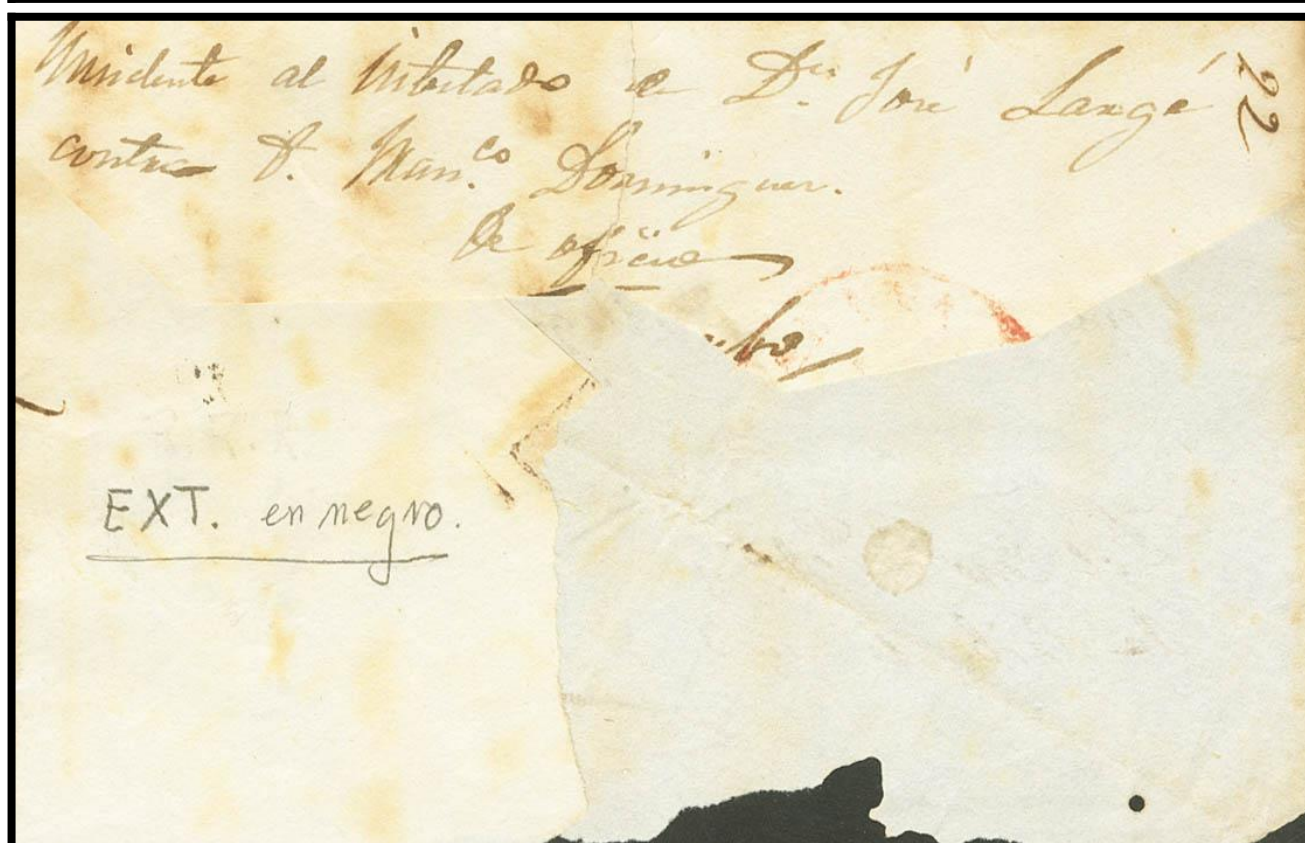 Insidente al Intestado de Dn. José Langé
contra D. Man.co Dominguez.
De oficio
EXT. en negro.
22